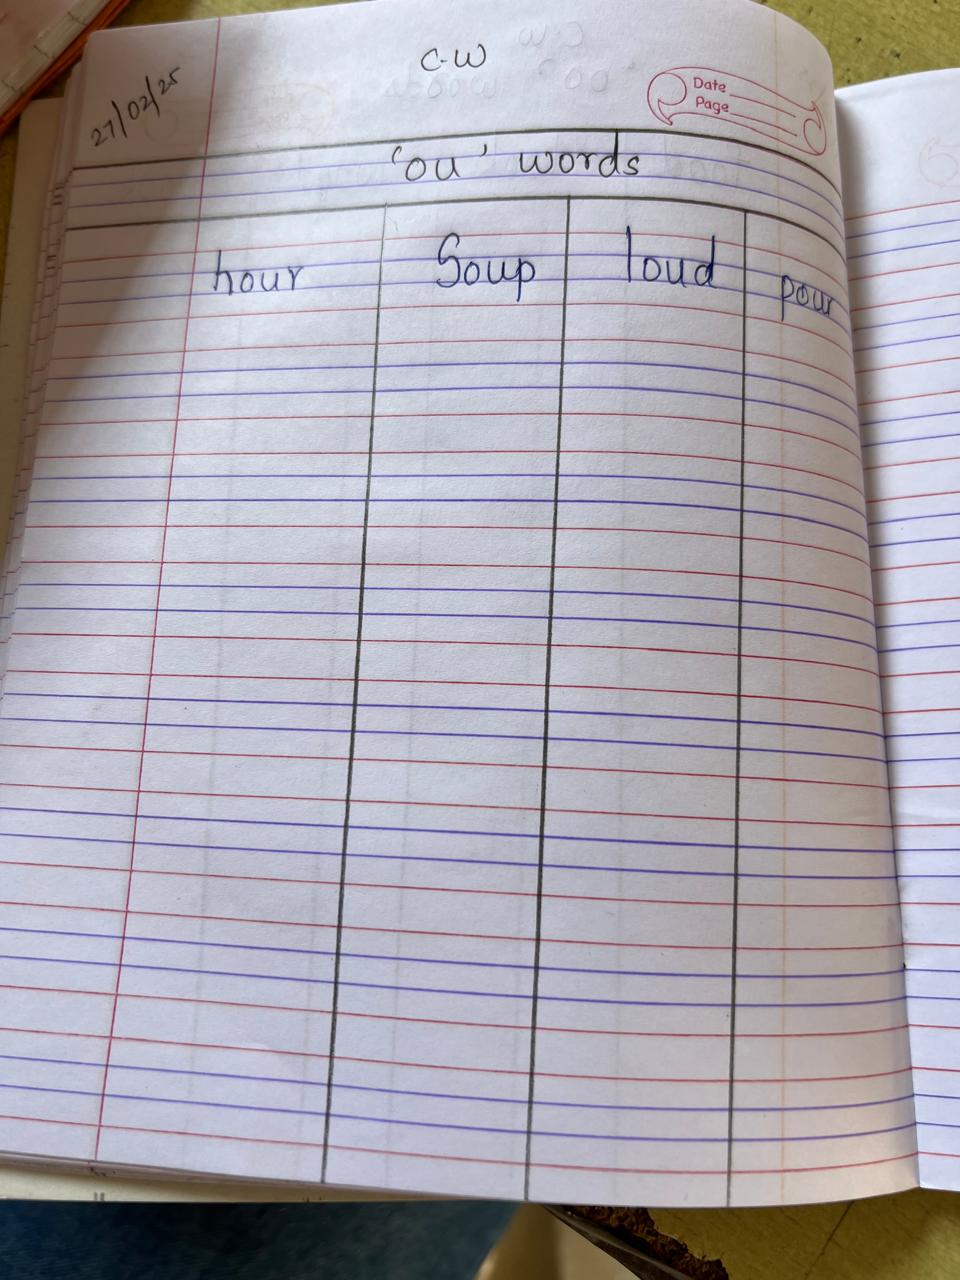 C-W
27/02/25
Date
Page
'ou' words
hour Soup loud pour